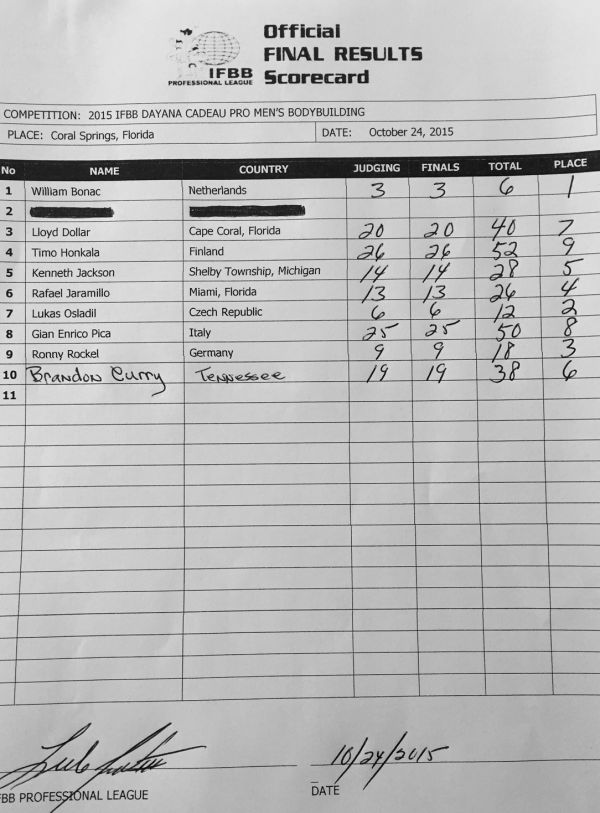 Official
FINAL RESULTS
Scorecard
IFBB
PROFESSIONAL LEAGUE
COMPETITION: 2015 IFBB DAYANA CADEAU PRO MEN'S BODYBUILDING
PLACE: Coral Springs, Florida DATE: October 24, 2015
No NAME COUNTRY JUDGING FINALS TOTAL PLACE
1 William Bonac Netherlands 3 3 6 1
2
3 Lloyd Dollar Cape Coral, Florida 20 20 40 7
4 Timo Honkala Finland 26 26 52 9
5 Kenneth Jackson Shelby Township, Michigan 14 14 28 5
6 Rafael Jaramillo Miami, Florida 13 13 26 4
7 Lukas Osladil Czech Republic 6 6 12 2
8 Gian Enrico Pica Italy 25 25 50 8
9 Ronny Rockel Germany 9 9 18 3
10 Brandon Curry Tennessee 19 19 38 6
11
10/24/2015
FBB PROFESSIONAL LEAGUE DATE